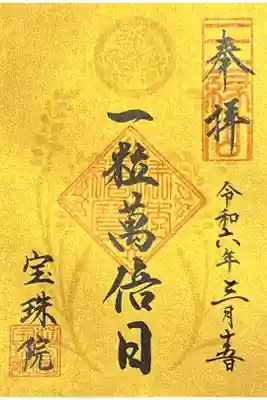 奉拝
令和六年三月十五日
一粒萬倍日
宝珠院